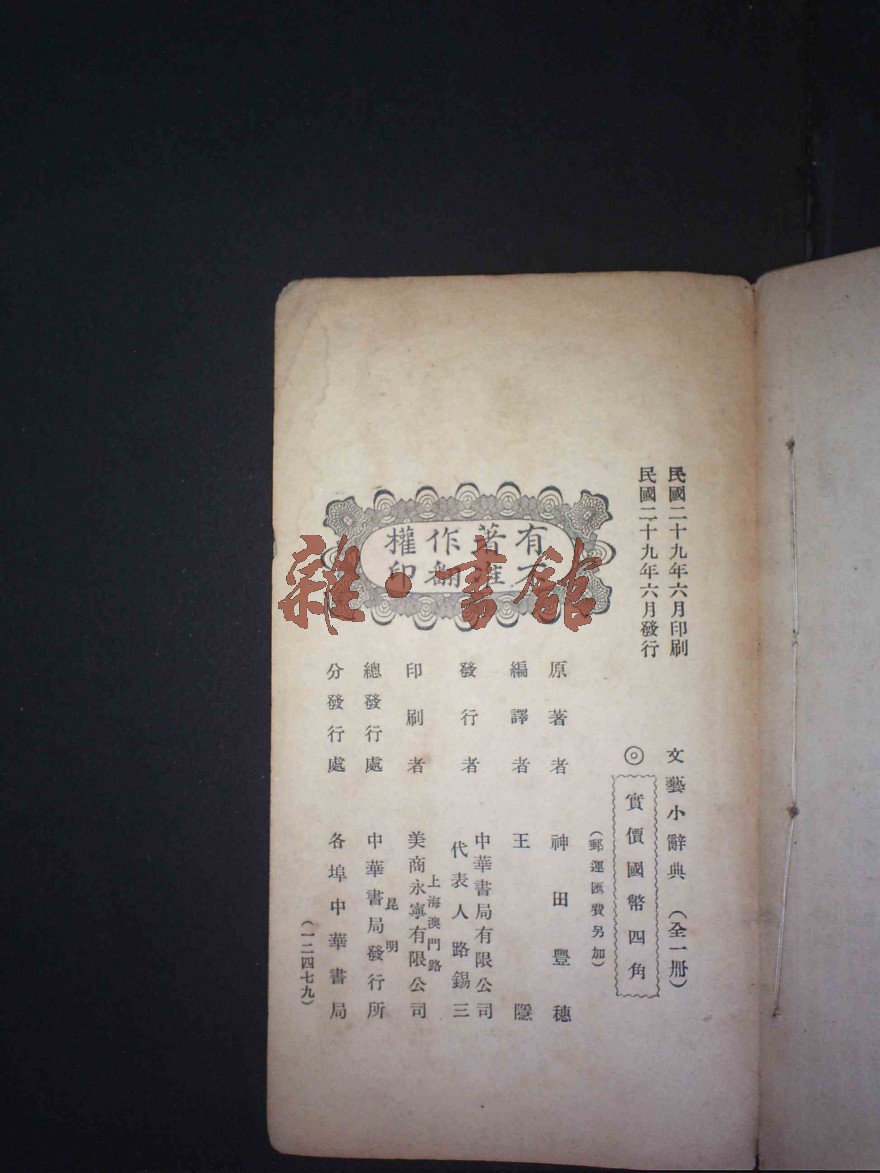 民國二十九年六月印刷
民國二十九年六月發行
文藝小辭典（全一冊）
◎實價國幣四角
（郵運匯費另加）
有著作權
不准翻印
原著者 神田豐穗
編譯者 王隱
發行者 中華書局有限公司
代表人路錫三
印刷者 上海澳門路
美商永寧有限公司
總發行處 昆明
中華書局發行所
分發行處 各埠中華書局
（一二四七九）
雜·書館